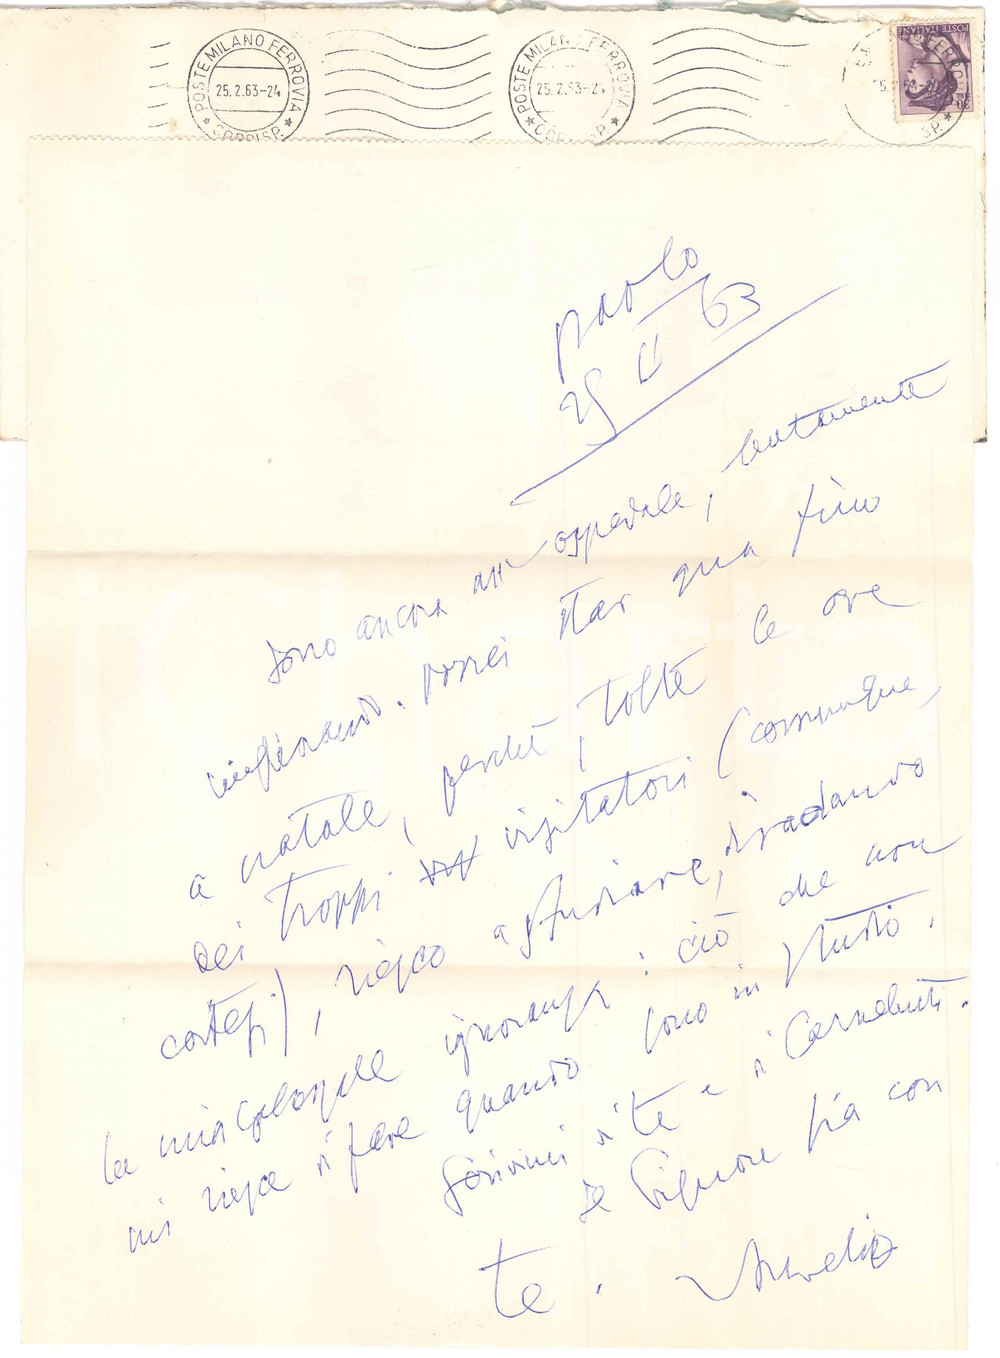 POSTE MILANO FERROVIA
25.2.63-24
CORRISP.
POSTE MILANO FERROVIA
25.2.63-24
CORRISP.
POSTE ITALIANE
30
Paolo
25 II 63
Sono ancora in ospedale, lentamente
migliorando. Vorrei star qua fino
a natale, perché, tolte le ore
dei troppi visitatori (comunque,
cortesi), riesco a studiare, diradando
la mia colossale ignoranza: ciò che non
mi riesce di fare quando sono in studio.
Scrivimi di te e di Carnelutti.
Il Signore sia con
te. Aurelio